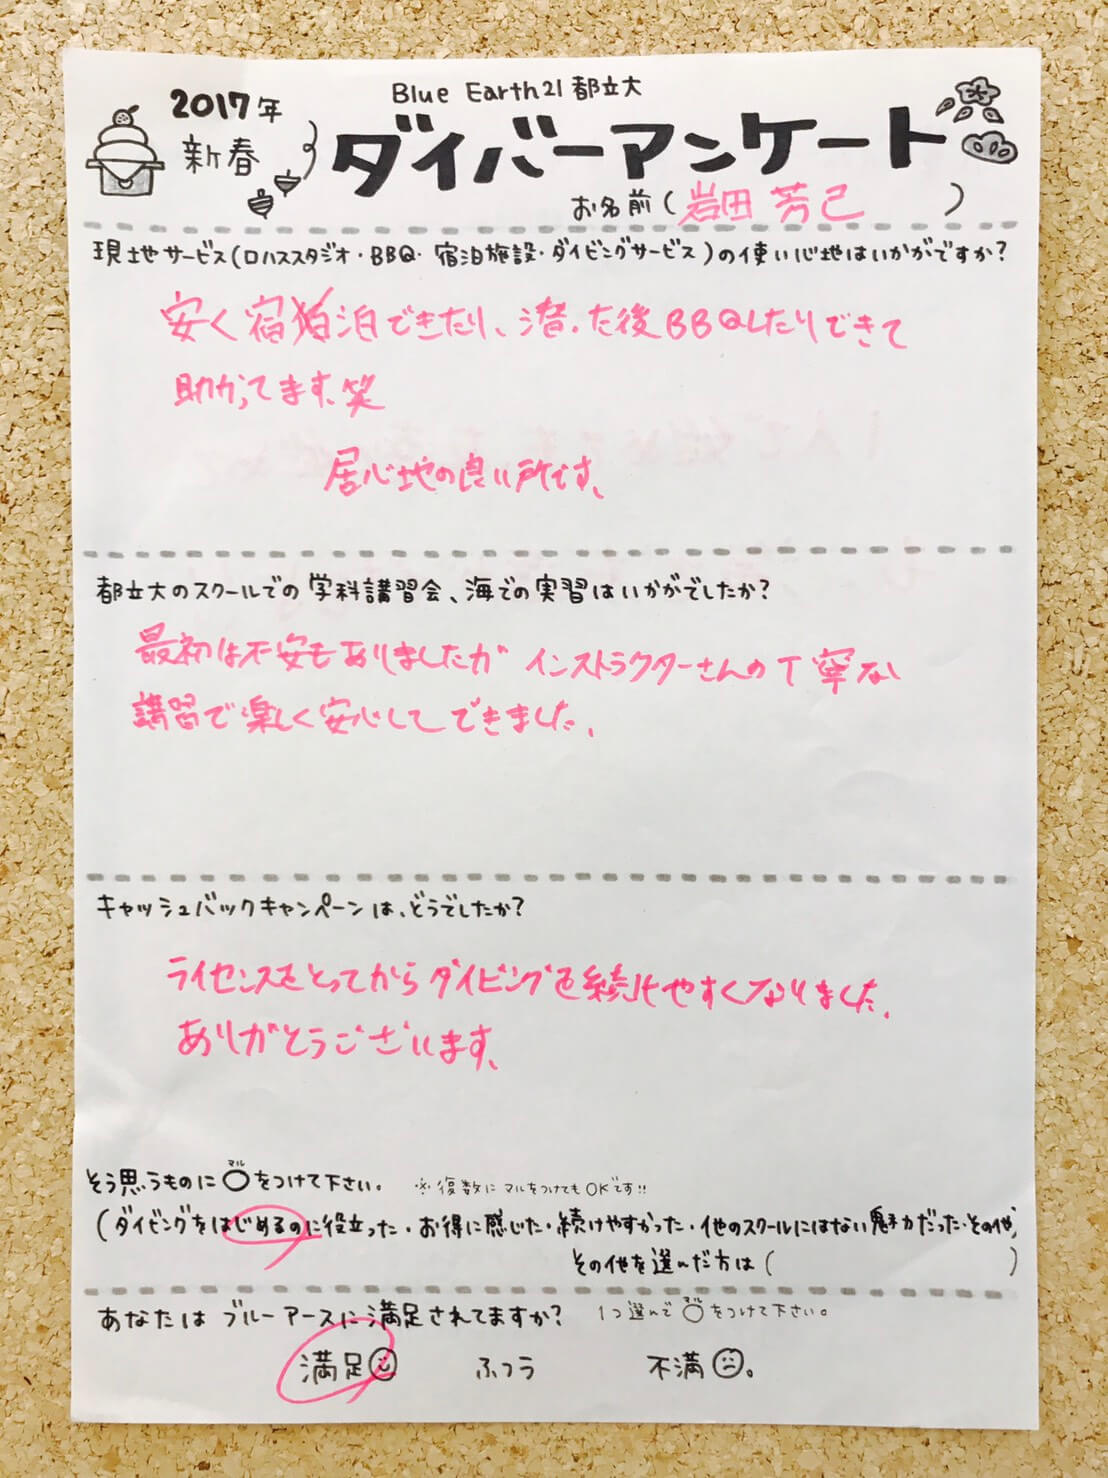 Blue Earth21 都立大
2017年
新春
ダイバーアンケート
お名前(岩田 芳己)
現地サービス(ロハススタジオ・BBQ・宿泊施設・ダイビングサービス)の使い心地はいかがですか?
安く宿泊できたり、潜った後BBQしたりできて
助かってます、笑
居心地の良い所です、
都立大のスクールでの学科講習会、海での実習はいかがでしたか?
最初は不安もありましたが インストラクターさんの丁寧な
講習で楽しく安心してできました、
キャッシュバックキャンペーンは、どうでしたか?
ライセンスをとってからダイビングを続けやすくなりました、
ありがとうございます、
マル
そう思うものに〇をつけて下さい。 ※復数にマルをつけてもOKです!!
(ダイビングをはじめるのに役立った・お得に感じた・続けやすかった・他のスクールにはない魅力だった・その他)
その他を選んだ方は( )
あなたは ブルーアースに満足されてますか? 1つ選んで〇をつけて下さい。
満足 ふつう 不満。